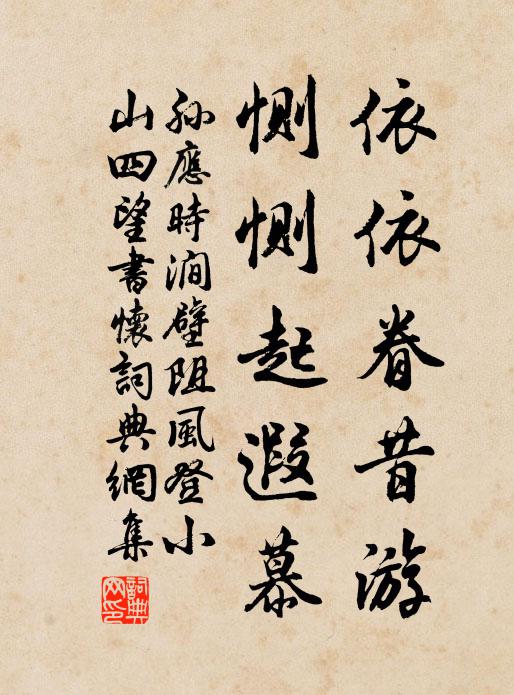 依依眷昔游
恻恻起遐慕
孙應時澗壁阻風登小
山四望書懷詞典網集
詞典網印